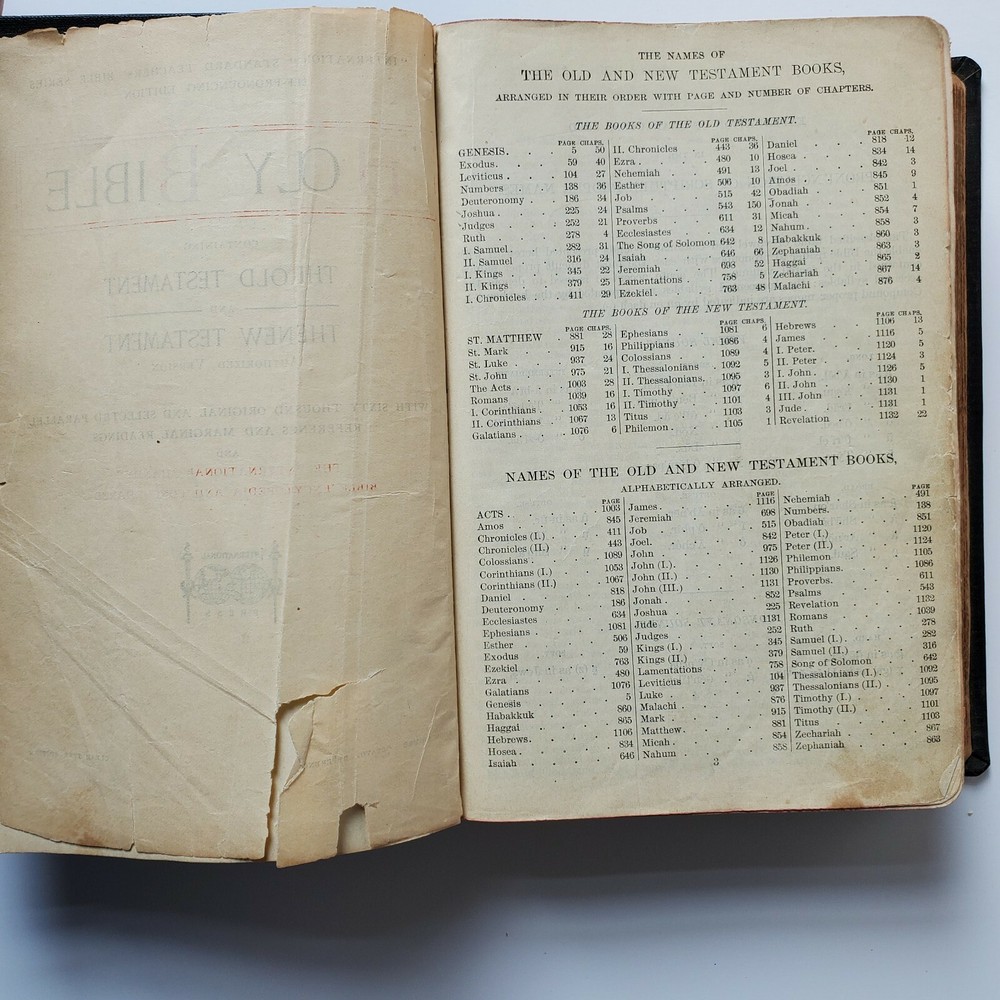 "INTERNATIONAL" STANDARD TEACHERS' BIBLE SERIES
SELF-PRONOUNCING EDITION
OLY IBLE
CONTAINING
OLD TESTAMENT
AND
NEW TESTAMENT
WITH SIXTY THOUSAND ORIGINAL AND SELECTED PARALLEL
REFERENCES AND MARGINAL READINGS
AND
THE NAMES OF
THE OLD AND NEW TESTAMENT BOOKS,
ARRANGED IN THEIR ORDER WITH PAGE AND NUMBER OF CHAPTERS.
THE BOOKS OF THE OLD TESTAMENT.
PAGE CHAPS.
GENESIS. 5 50
Exodus. 59 40
Leviticus 104 27
Numbers 138 36
Deuteronomy 186 34
Joshua 225 24
Judges 252 21
Ruth 278 4
I. Samuel 282 31
II. Samuel 316 24
I. Kings 345 22
II. Kings 379 25
I. Chronicles 411 29
PAGE CHAPS.
II. Chronicles 443 36
Ezra 480 10
Nehemiah 491 13
Esther 506 10
Job 515 42
Psalms 543 150
Proverbs 611 31
Ecclesiastes 634 12
The Song of Solomon 642 8
Isaiah 646 66
Jeremiah 698 52
Lamentations 758 5
Ezekiel 763 48
PAGE CHAPS.
Daniel 818 12
Hosea 834 14
Joel 842 3
Amos 845 9
Obadiah 851 1
Jonah 852 4
Micah 854 7
Nahum 858 3
Habakkuk 860 3
Zephaniah 863 3
Haggai 865 2
Zechariah 867 14
Malachi 876 4
THE BOOKS OF THE NEW TESTAMENT.
PAGE CHAPS.
ST. MATTHEW 881 28
St. Mark 915 16
St. Luke 937 24
St. John 975 21
The Acts 1003 28
Romans 1039 16
I. Corinthians 1053 16
II. Corinthians 1067 13
Galatians 1076 6
PAGE CHAPS.
Ephesians 1081 6
Philippians 1086 4
Colossians 1089 4
I. Thessalonians 1092 5
II. Thessalonians. 1095 3
I. Timothy 1097 6
II. Timothy 1101 4
Titus 1103 3
Philemon 1105 1
PAGE CHAPS.
Hebrews 1106 13
James 1116 5
I. Peter. 1120 5
II. Peter 1124 3
I. John 1126 5
II. John 1130 1
III. John 1131 1
Jude 1131 1
Revelation 1132 22
NAMES OF THE OLD AND NEW TESTAMENT BOOKS,
ALPHABETICALLY ARRANGED.
PAGE
ACTS 1003
Amos 845
Chronicles (I.) 411
Chronicles (II.) 443
Colossians 1089
Corinthians (I.) 1053
Corinthians (II.) 1067
Daniel 818
Deuteronomy 186
Ecclesiastes 634
Ephesians 1081
Esther 506
Exodus 59
Ezekiel 763
Ezra 480
Galatians 1076
Genesis 5
Habakkuk 860
Haggai 865
Hebrews. 1106
Hosea 834
Isaiah 646
PAGE
James. 1116
Jeremiah 698
Job 515
Joel. 842
John 975
John (I.) 1126
John (II.) 1130
John (III.) 1131
Jonah 852
Joshua 225
Jude 1131
Judges 252
Kings (I.) 345
Kings (II.) 379
Lamentations 758
Leviticus 104
Luke 937
Malachi 876
Mark 915
Matthew. 881
Micah 854
Nahum 858
PAGE
Nehemiah 491
Numbers. 138
Obadiah 851
Peter (I.) 1120
Peter (II.) 1124
Philemon 1105
Philippians. 1086
Proverbs. 611
Psalms 543
Revelation 1132
Romans 1039
Ruth 278
Samuel (I.) 282
Samuel (II.) 316
Song of Solomon 642
Thessalonians (I.) 1092
Thessalonians (II.) 1095
Timothy (I.) 1097
Timothy (II.) 1101
Titus 1103
Zechariah 867
Zephaniah 863
3